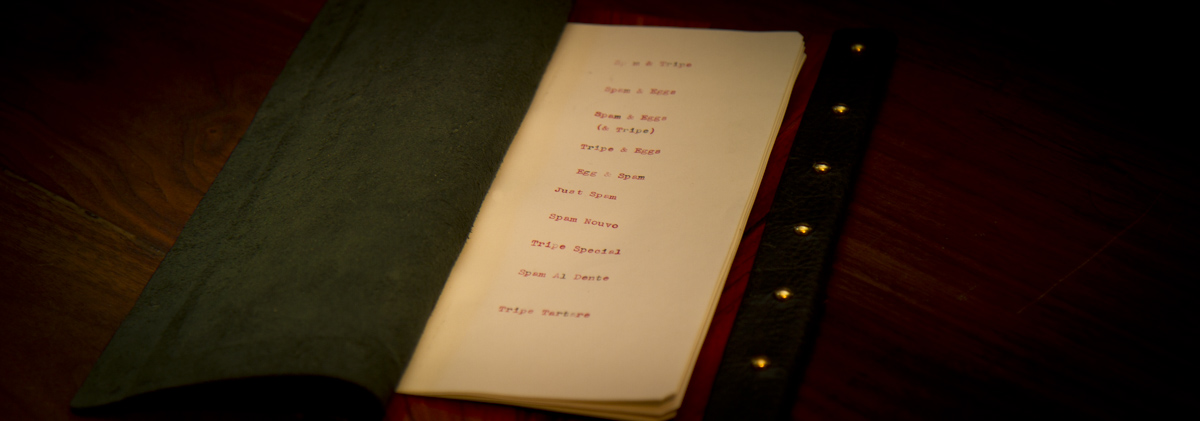 Spam & Tripe
Spam & Eggs
Spam & Eggs
(& Tripe)
Tripe & Eggs
Egg & Spam
Just Spam
Spam Nouvo
Tripe Special
Spam Al Dente
Tripe Tartare